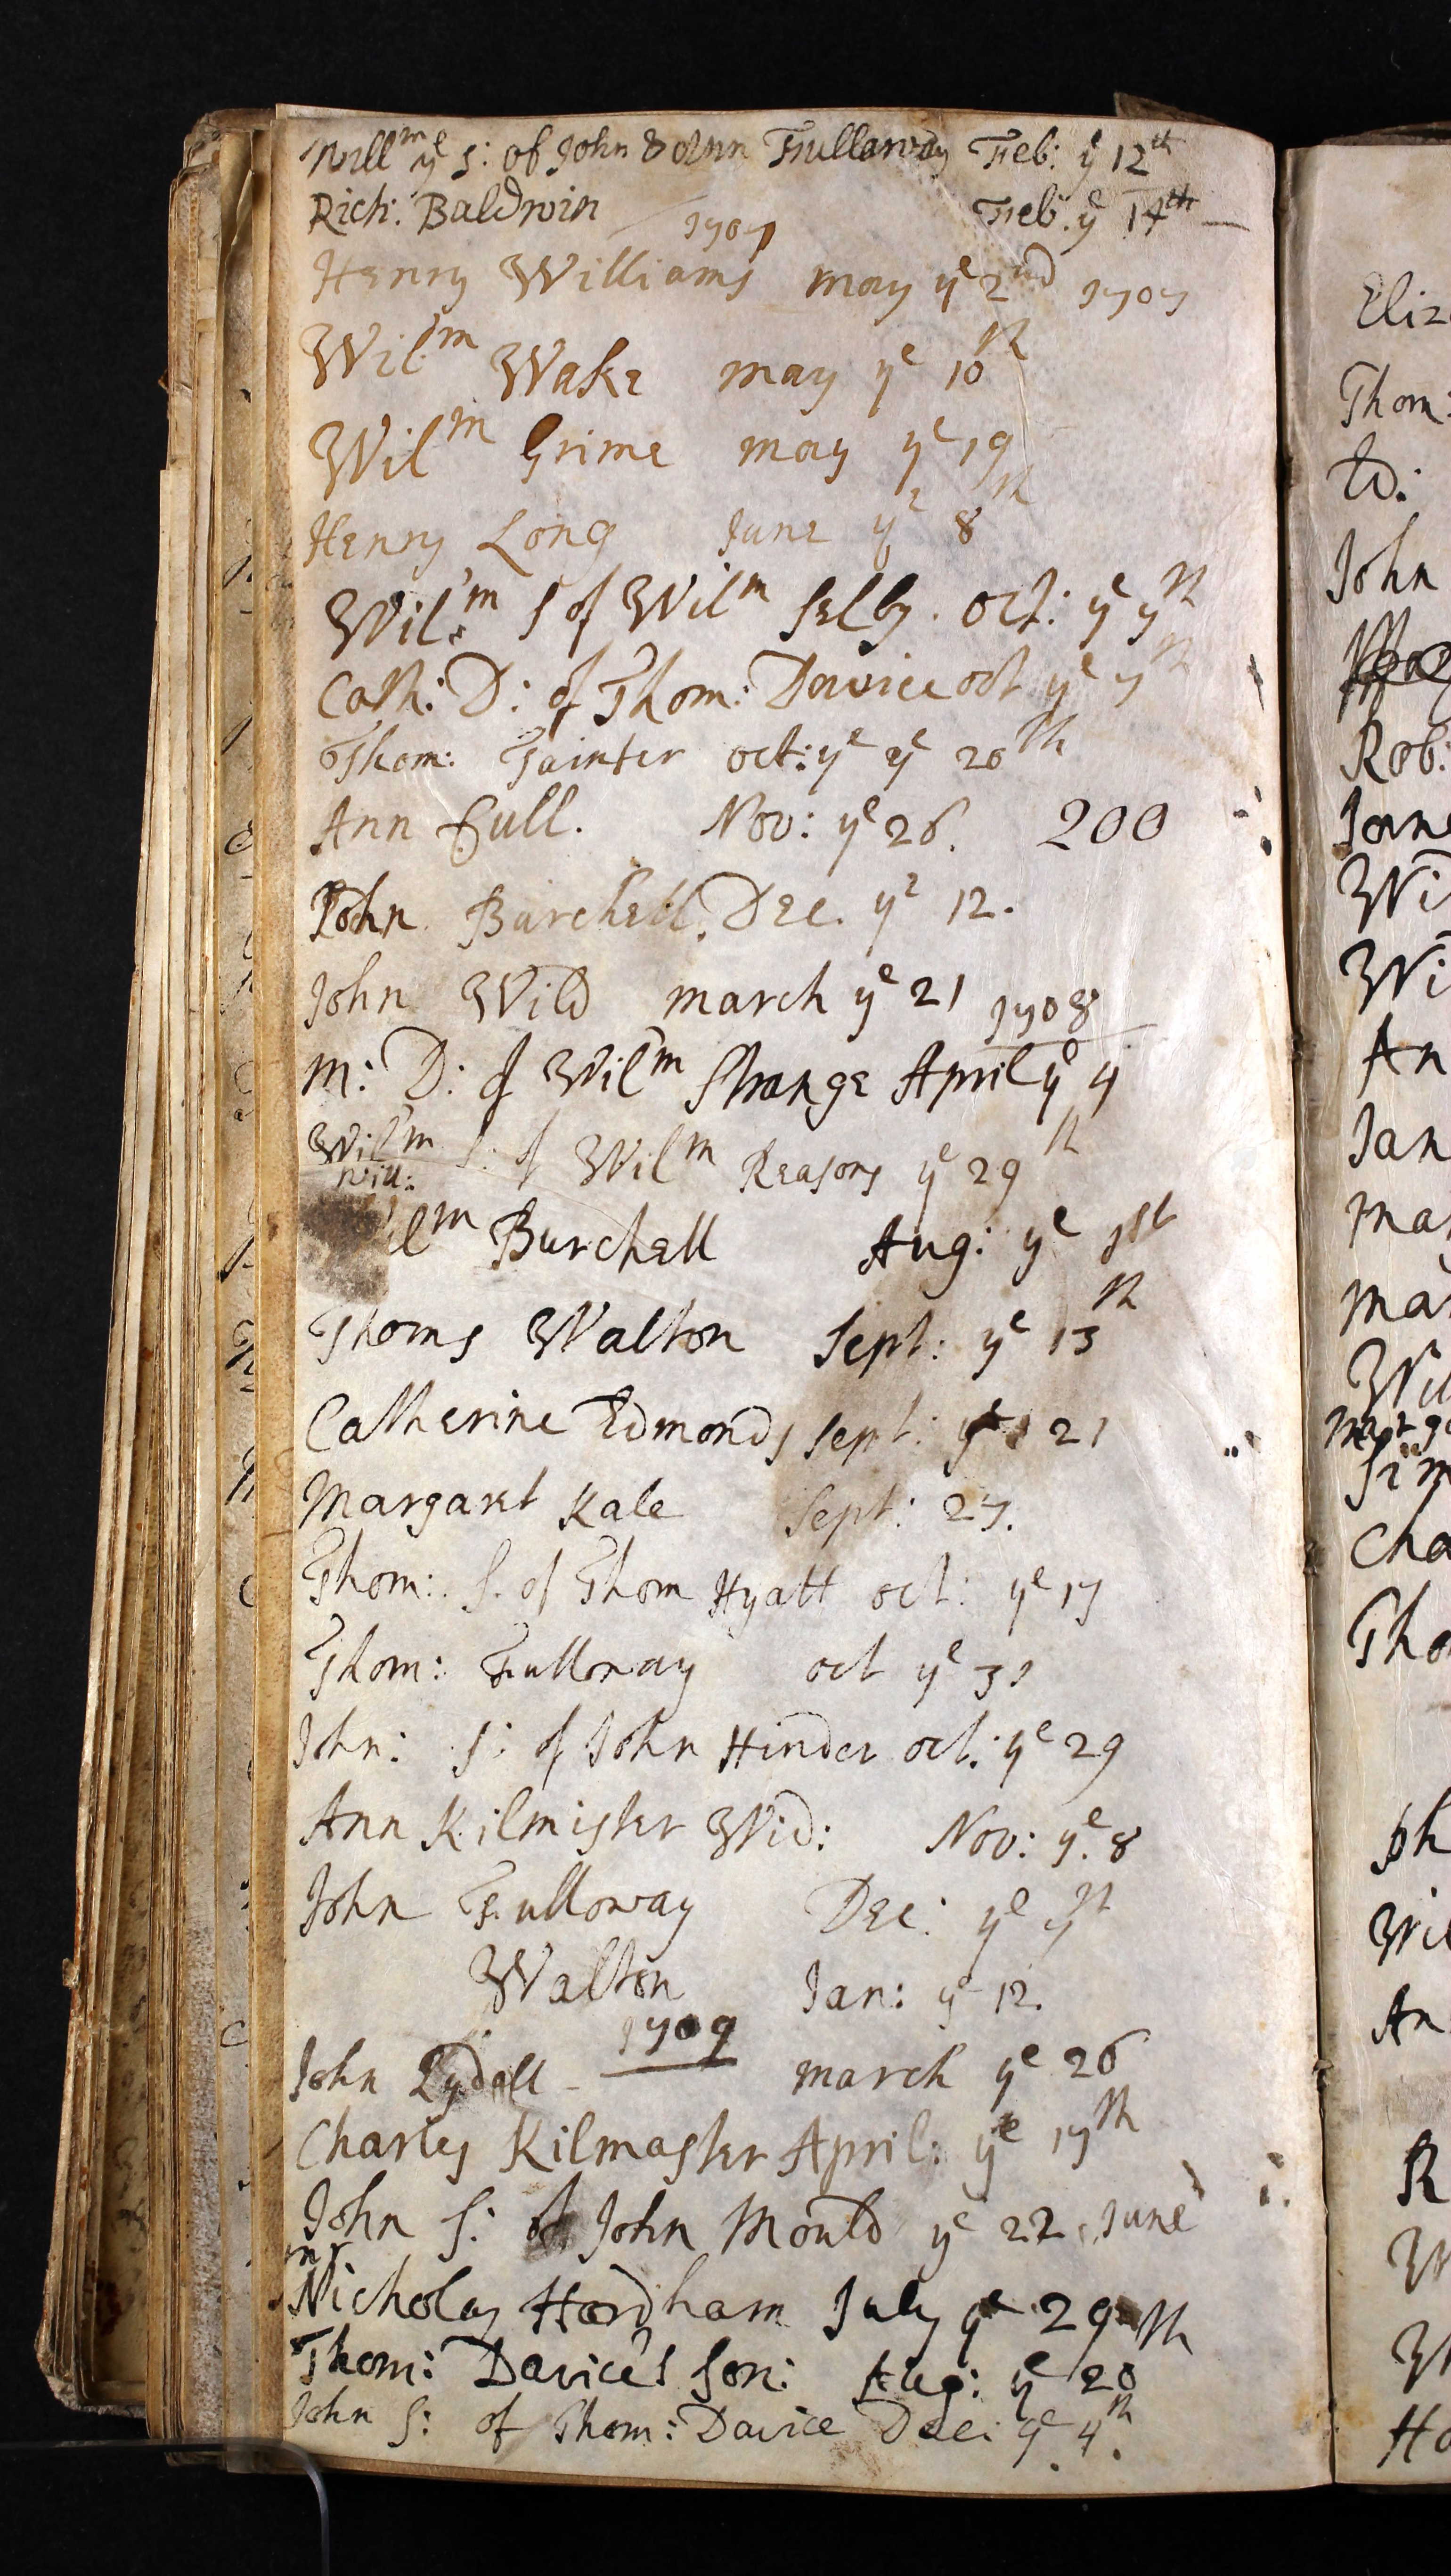 Will^m y^e s: of John & Ann Fullaway Feb: y^e 12^th
Rich: Baldwin Feb: y^e 14^th
1707
Henry Williams may y^e 2^nd 1707
Wil^m Wake may y^e 10^th
Wil^m Grime may y^e 19^th
Henry Long June y^e 8^th
Wil^m S of Wil^m Selby. oct: y^e 7^th
Cath: D: of Thom: Davice oct y^e 7^th
Thom: Tainter oct: y^e y^e 20^th
Ann Gull. Nov: y^e 26. 200
John Burchell. Dec. y^e 12.
John Wild march y^e 21
1708
M: D: of Wil^m Strange April y^e 4
Wil^m S: of Wil^m Reasons y^e 29^th
Will:
il^m Burchell Aug: y^e 1^st
Thoms Walton Sept: y^e 13^th
Catherine Edmonds Sept: y^e 21
Margaret Kale Sept: 27.
Thom: S. of Thom Hyatt oct: y^e 17
Thom: Fulloway oct y^e 31
John: S: of John Hinder oct: y^e 29
Ann Kilmister Wid: Nov: y^e 8
John Fulloway Dec: y^e 7^th
Walton Jan: y^e 12.
1709
John Lydall march y^e 26
Charles Kilmaster April: y^e 17^th
John S: of John Mould y^e 22 June
m^r
Nicholas Hardham July y^e 29^th
Thom: Davice's Son: Aug: y^e 20
John S: of Thom: Davice Dec: y^e 4^th
Eliz
Thom:
Ed:
John
Rob:
Jane
Wi
Wi
An
Jan
mar
mar
Wil
marga
Sim
Cha
Tho
Wil
An
R
W
W
Ha